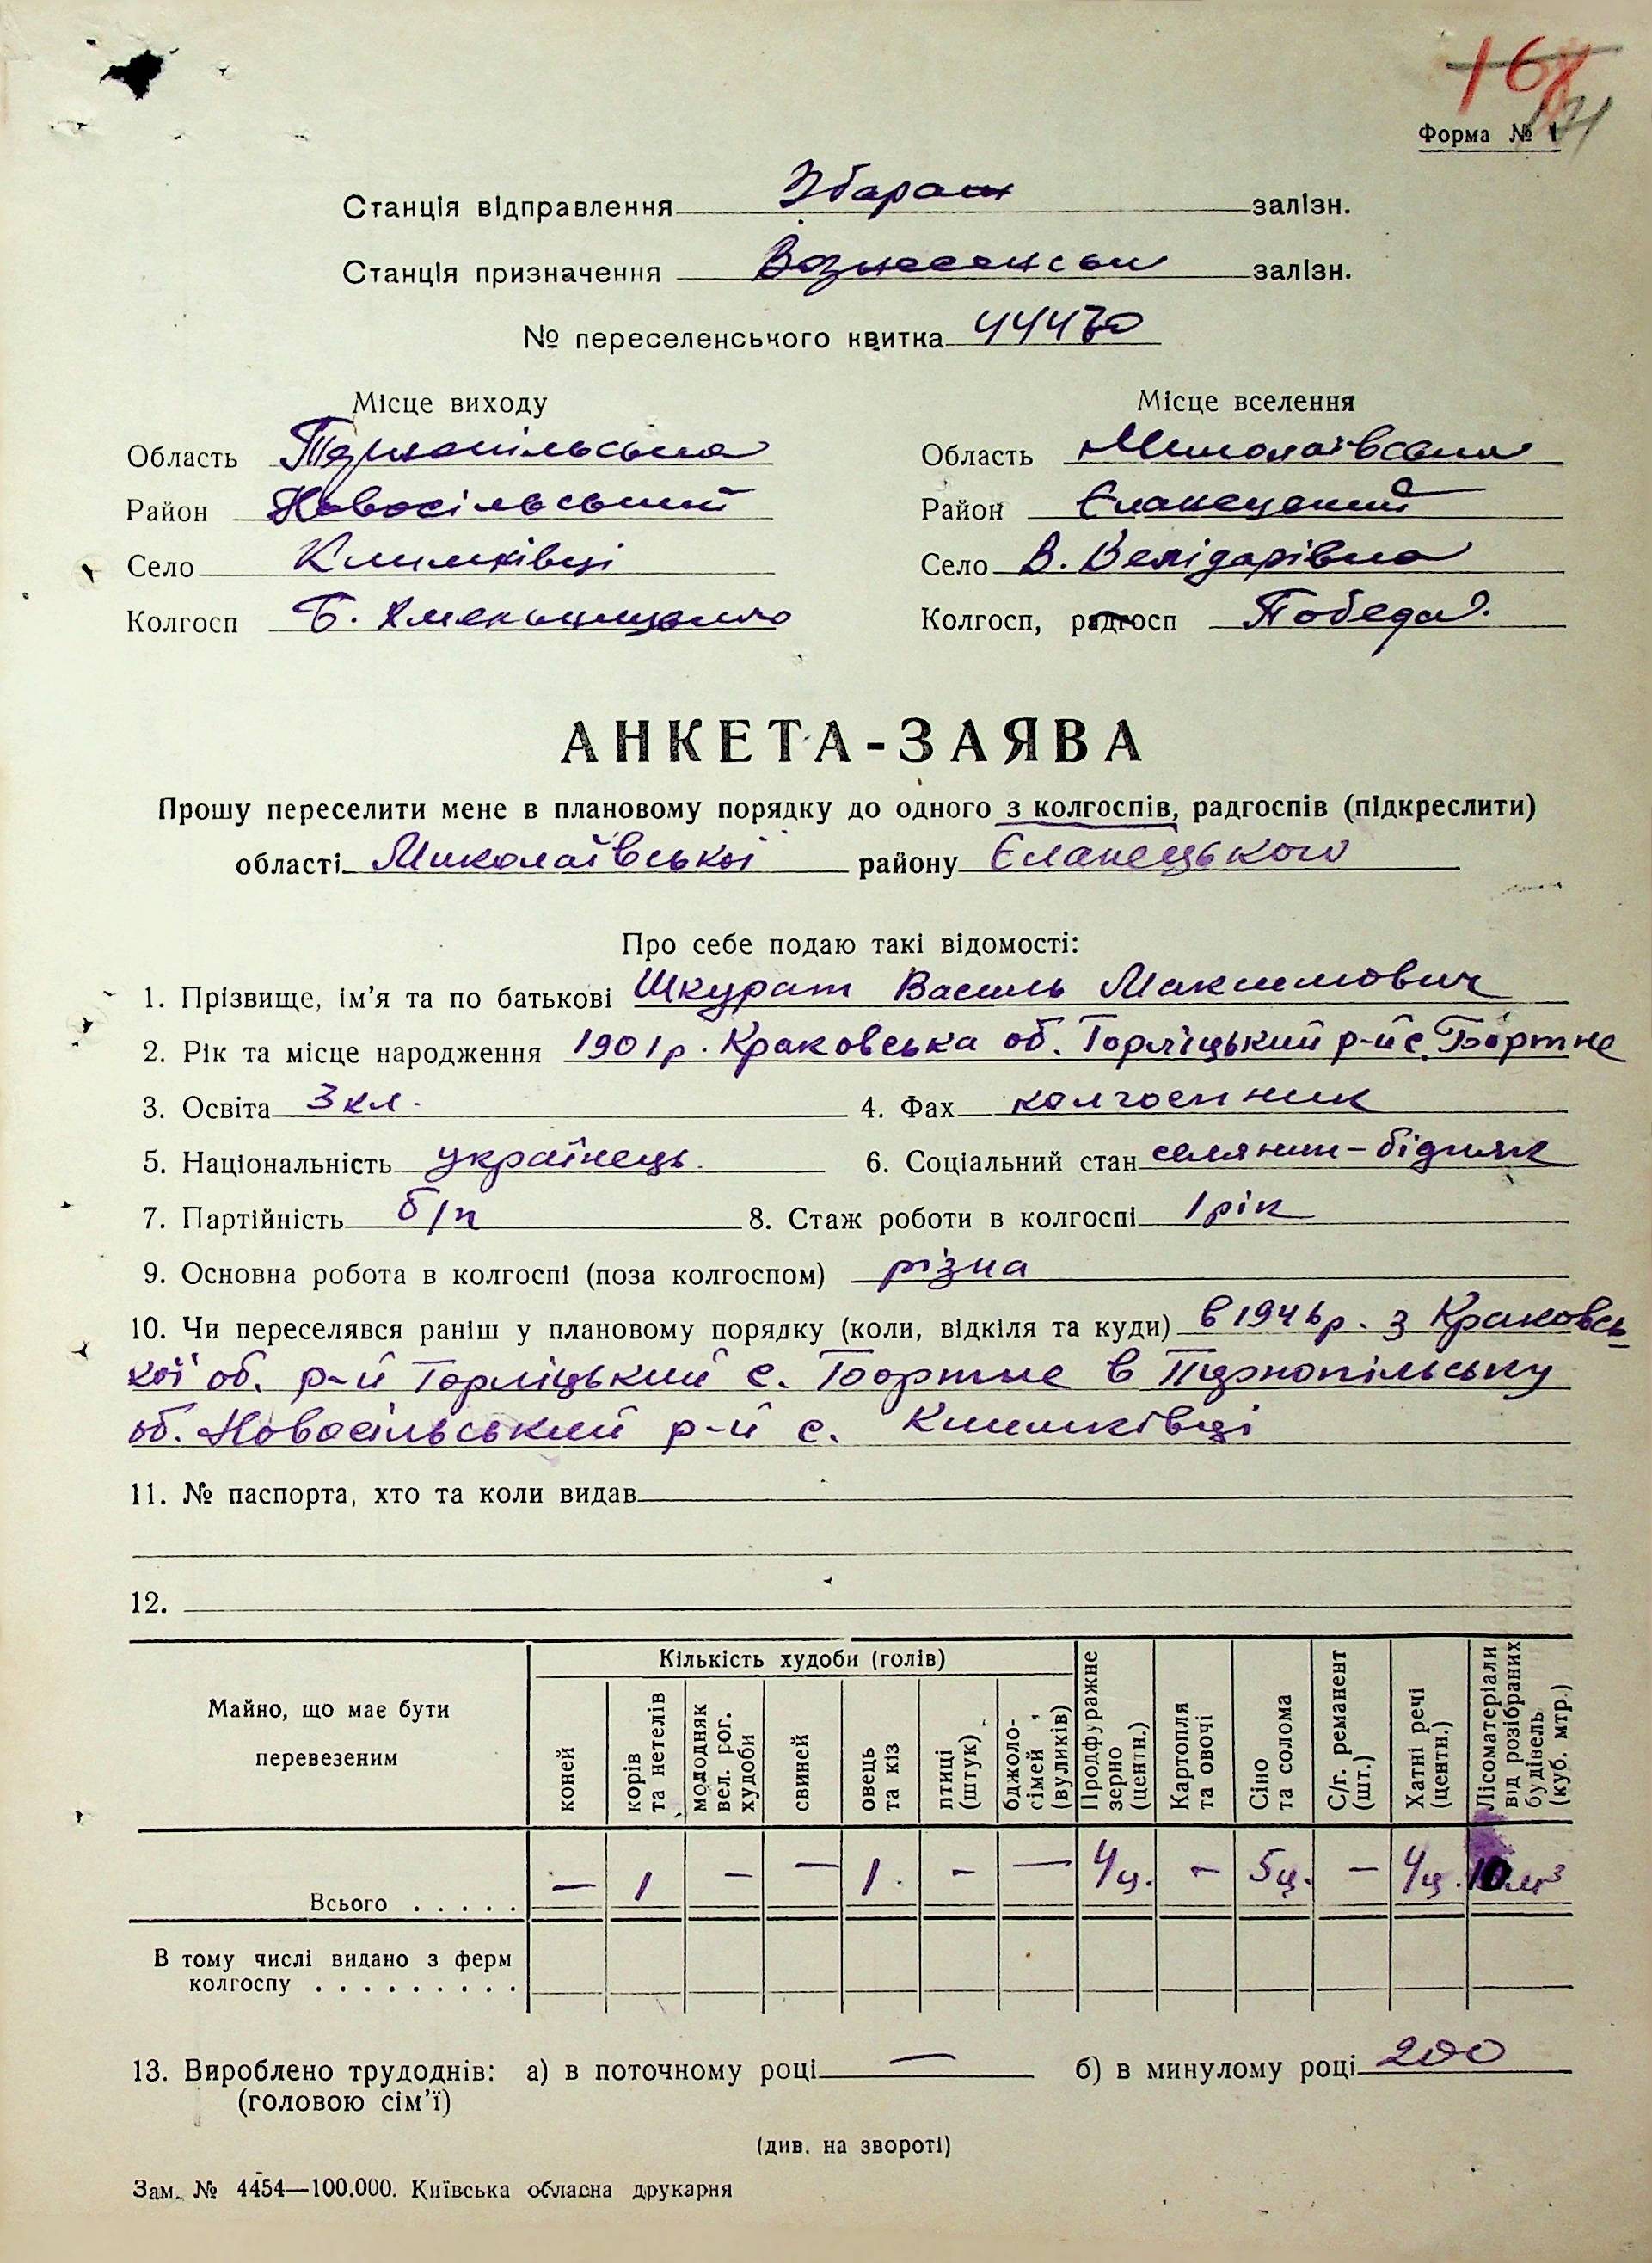 168
171
Форма № 1
Станція відправлення Збараж залізн.
Станція призначення Вознесенськ залізн.
№ переселенського квитка 44470
Місце виходу Місце вселення
Область Тернопільська Область Миколаївська
Район Новосільський Район Єланецький
Село Климківці Село В. Велідарівка
Колгосп Б. Хмельницького Колгосп, радгосп Победа
АНКЕТА-ЗАЯВА
Прошу переселити мене в плановому порядку до одного з колгоспів, радгоспів (підкреслити)
області Миколаївської району Єланецького
Про себе подаю такі відомості:
1. Прізвище, ім'я та по батькові Шкурат Василь Максимович
2. Рік та місце народження 1901 р. Краковська об. Горліцький р-й с. Бортне
3. Освіта 3 кл. 4. Фах колгоспник
5. Національність українець. 6. Соціальний стан селянин-бідняк
7. Партійність б/п 8. Стаж роботи в колгоспі 1 рік
9. Основна робота в колгоспі (поза колгоспом) різна
10. Чи переселявся раніш у плановому порядку (коли, відкіля та куди) в 1946 р. з Краковсь
кої об. р-й Горліцький с. Бортне в Тернопільську
об. Новосільський р-й с. Климківці
11. № паспорта, хто та коли видав
12.
Майно, що має бути перевезеним
Кількість худоби (голів)
коней
корів та нетелів
молодняк вел. рог. худоби
свиней
овець та кіз
птиці (штук)
бджоло-сімей (вуликів)
Продфуражне зерно (центн.)
Картопля та овочі
Сіно та солома
С/г. реманент (шт.)
Хатні речі (центн.)
Лісоматеріали від розібраних будівель (куб. мтр.)
Всього . . . . . — 1 — — 1. — — 4ц. — 5ц. — 4ц. 10 м³
В тому числі видано з ферм
колгоспу . . . . . . . . .
13. Вироблено трудоднів: а) в поточному році — б) в минулому році 200
(головою сім'ї)
(див. на звороті)
Зам. № 4454—100.000. Київська обласна друкарня